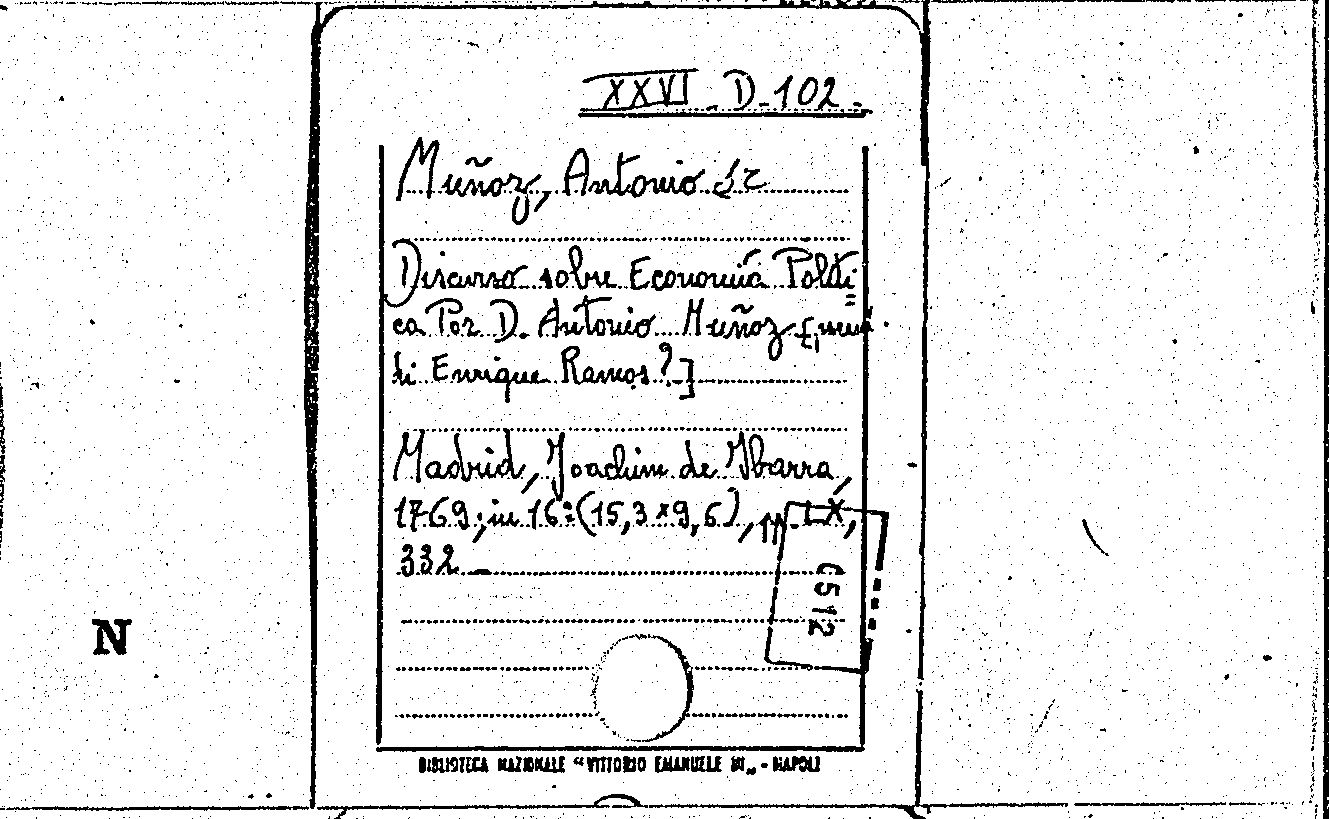 XXVI D. 102.
Muñoz, Antonio
Discurso sobre Economía Políti=
ca Por D. Antonio Muñoz
di Enrique Ramos?]
Madrid, Joachim de Ybarra,
1769; in 16º (15,3 x 9,6), pp. LX,
332
6512
N
BIBLIOTECA NAZIONALE "VITTORIO EMANUELE III" - NAPOLI